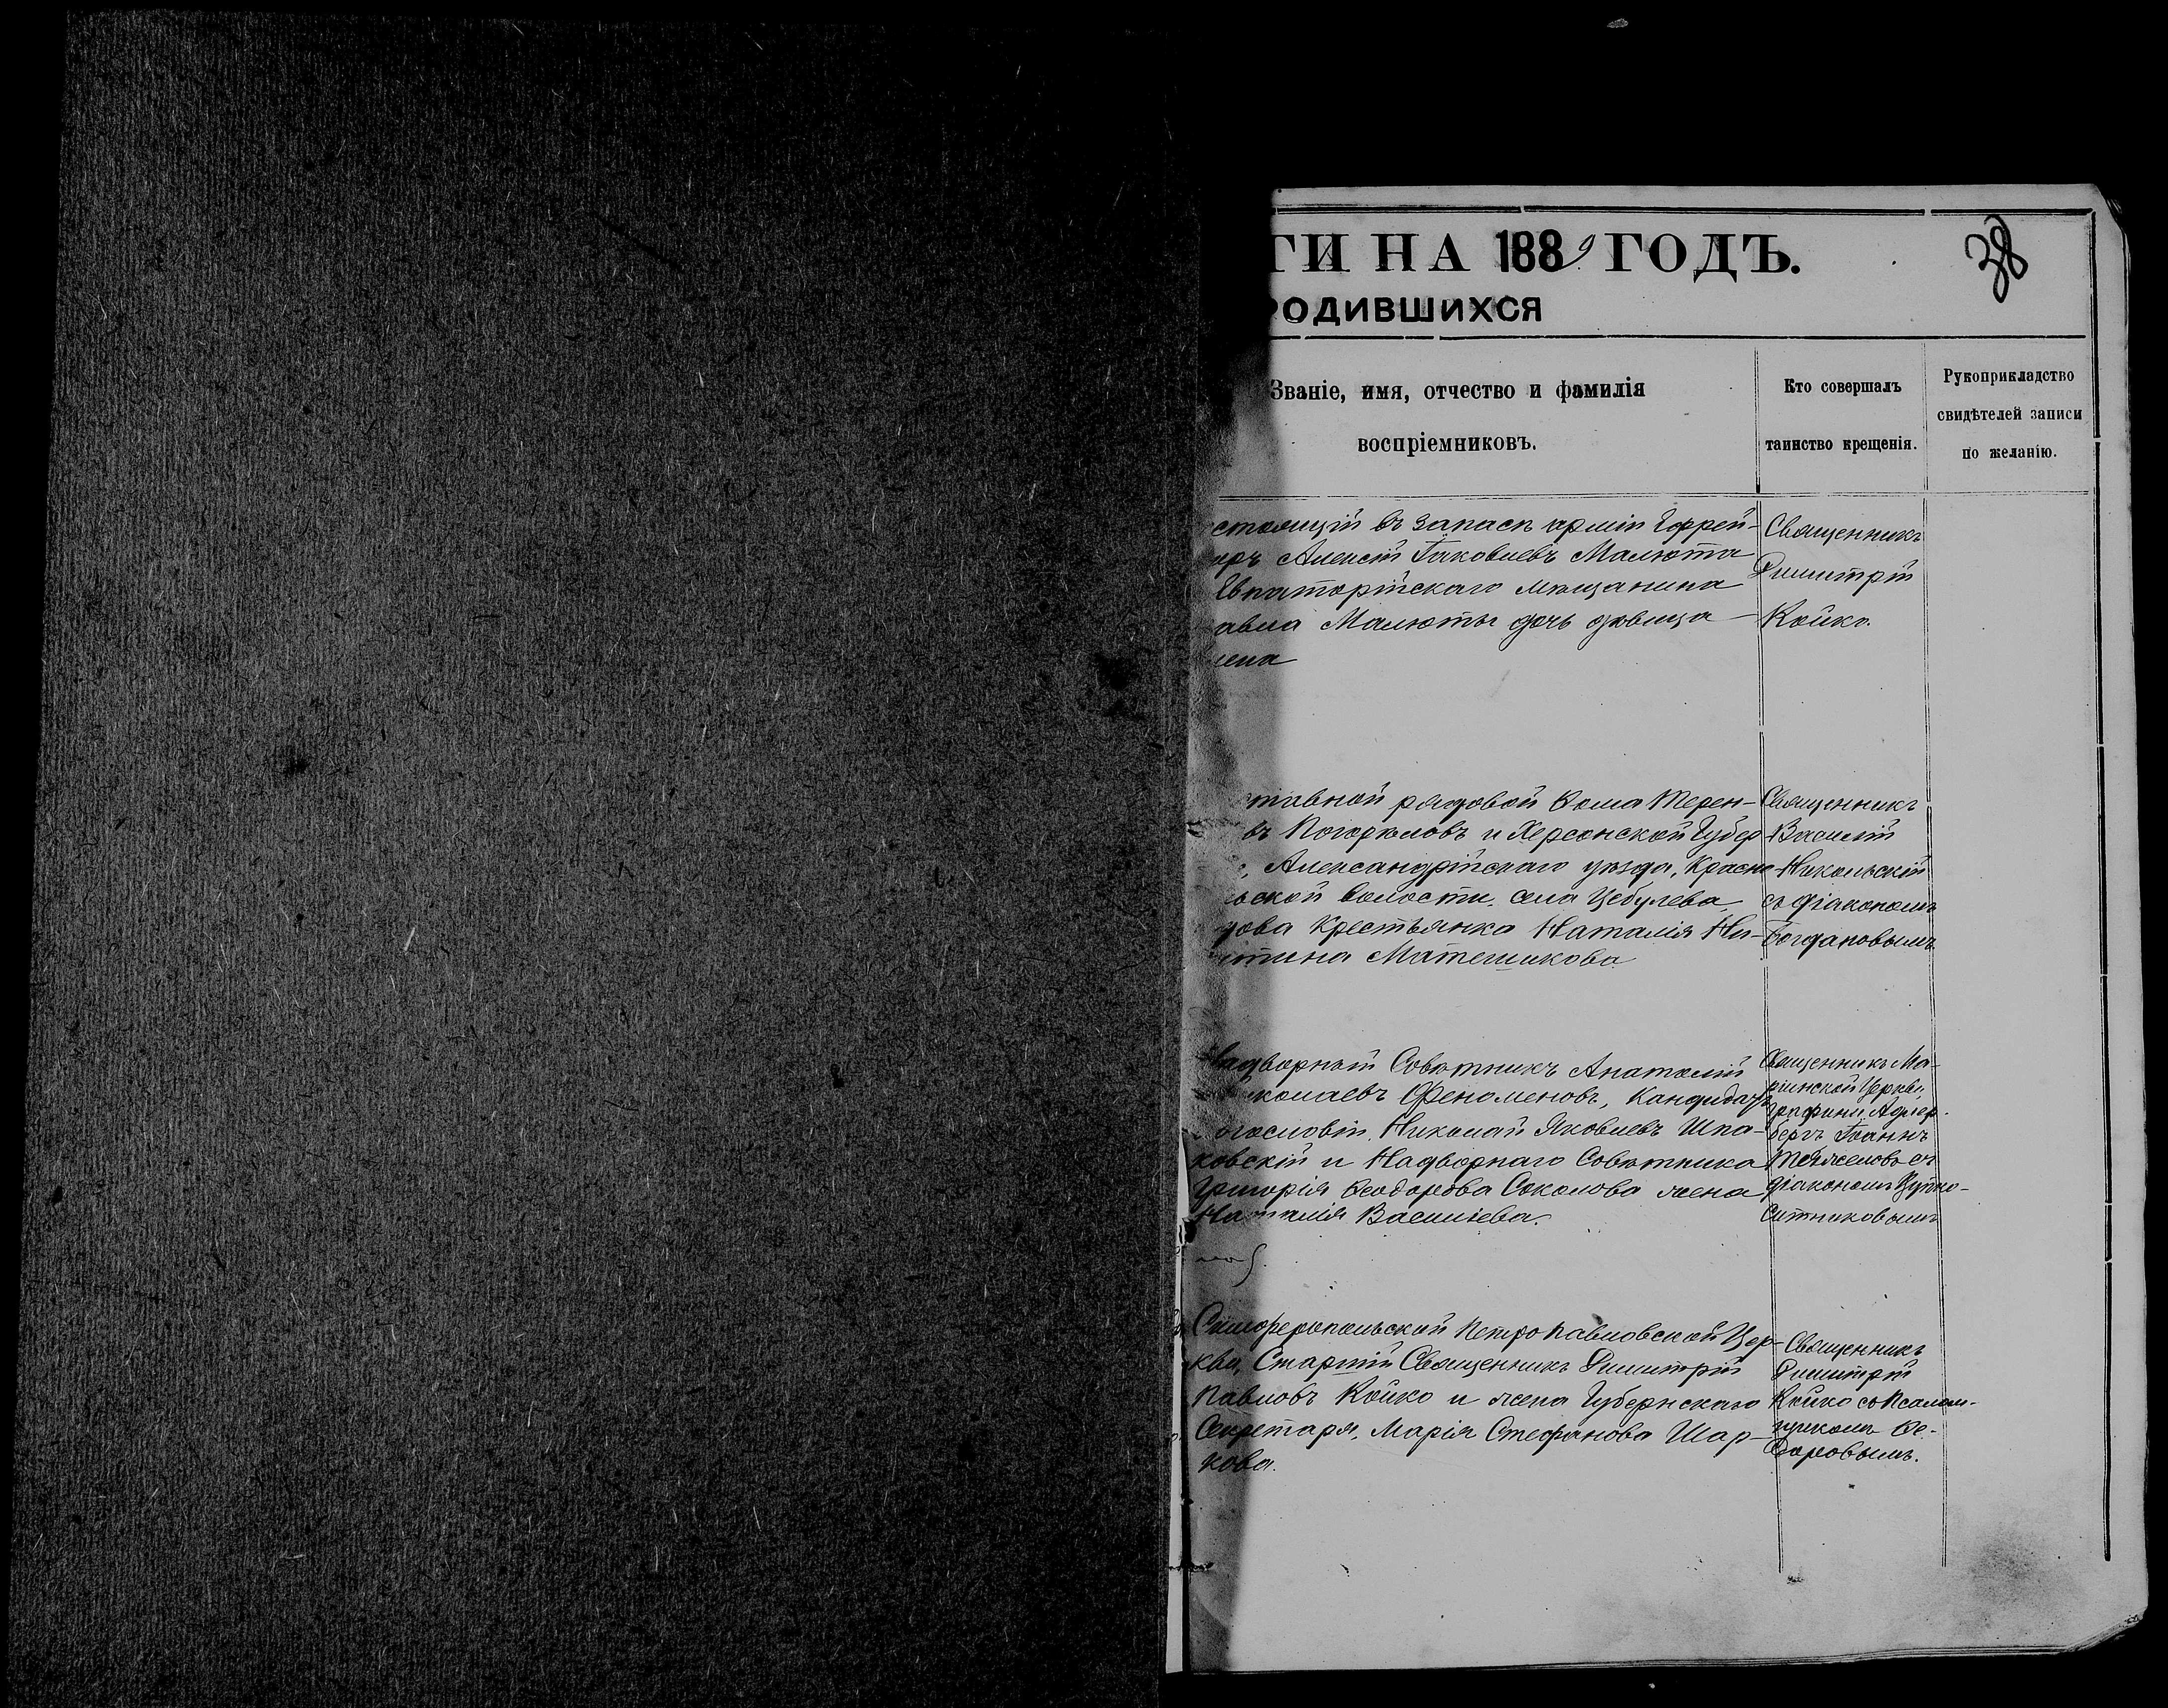 ГИ НА 1889 ГОДЪ.
38
РОДИВШИХСЯ
Званіе, имя, отчество и фамилія
воспріемниковъ.
Кто совершалъ
таинство крещенія.
Рукоприкладство
свидѣтелей записи
по желанію.
стоящій въ запасѣ арміи Ефрей-
оръ Алексій Іаковлевъ Малюта
Евпаторійскаго мѣщанина
авла Малюты дочь дѣвица
лена
Священникъ
Димитрій
Койко.
ставной рядовой Ѳома Терен-
въ Погорѣловъ и Херсонской Губер
Александрійскаго уѣзда, Красно
ьской волости, села Цебулева,
дова Крестьянка Наталія Ни-
итина
Священникъ
Василій
Никольскій
съ діакономъ
Богдановымъ
Надворный Совѣтникъ Анатолій
колаевъ Феноменовъ, Кандидатъ
огословія Николай Яковлевъ Шпа-
ковскій и Надворнаго Совѣтника
Григорія Ѳеодорова Соколова жена
Наталія Василіева.
Священникъ Ма-
ріинской Церкви,
Графини Адлер-
бергъ Іоаннъ
съ
діакономъ
Ситниковымъ
Симферопольской Петропавловской Цер-
кви, Старшій Священникъ Димитрій
Павловъ Койко и жена Губернскаго
Секретаря, Марія Стефанова Шар-
кова.
Священникъ
Димитрій
Койко съ Псалом-
щикомъ Ѳе-
доровымъ.